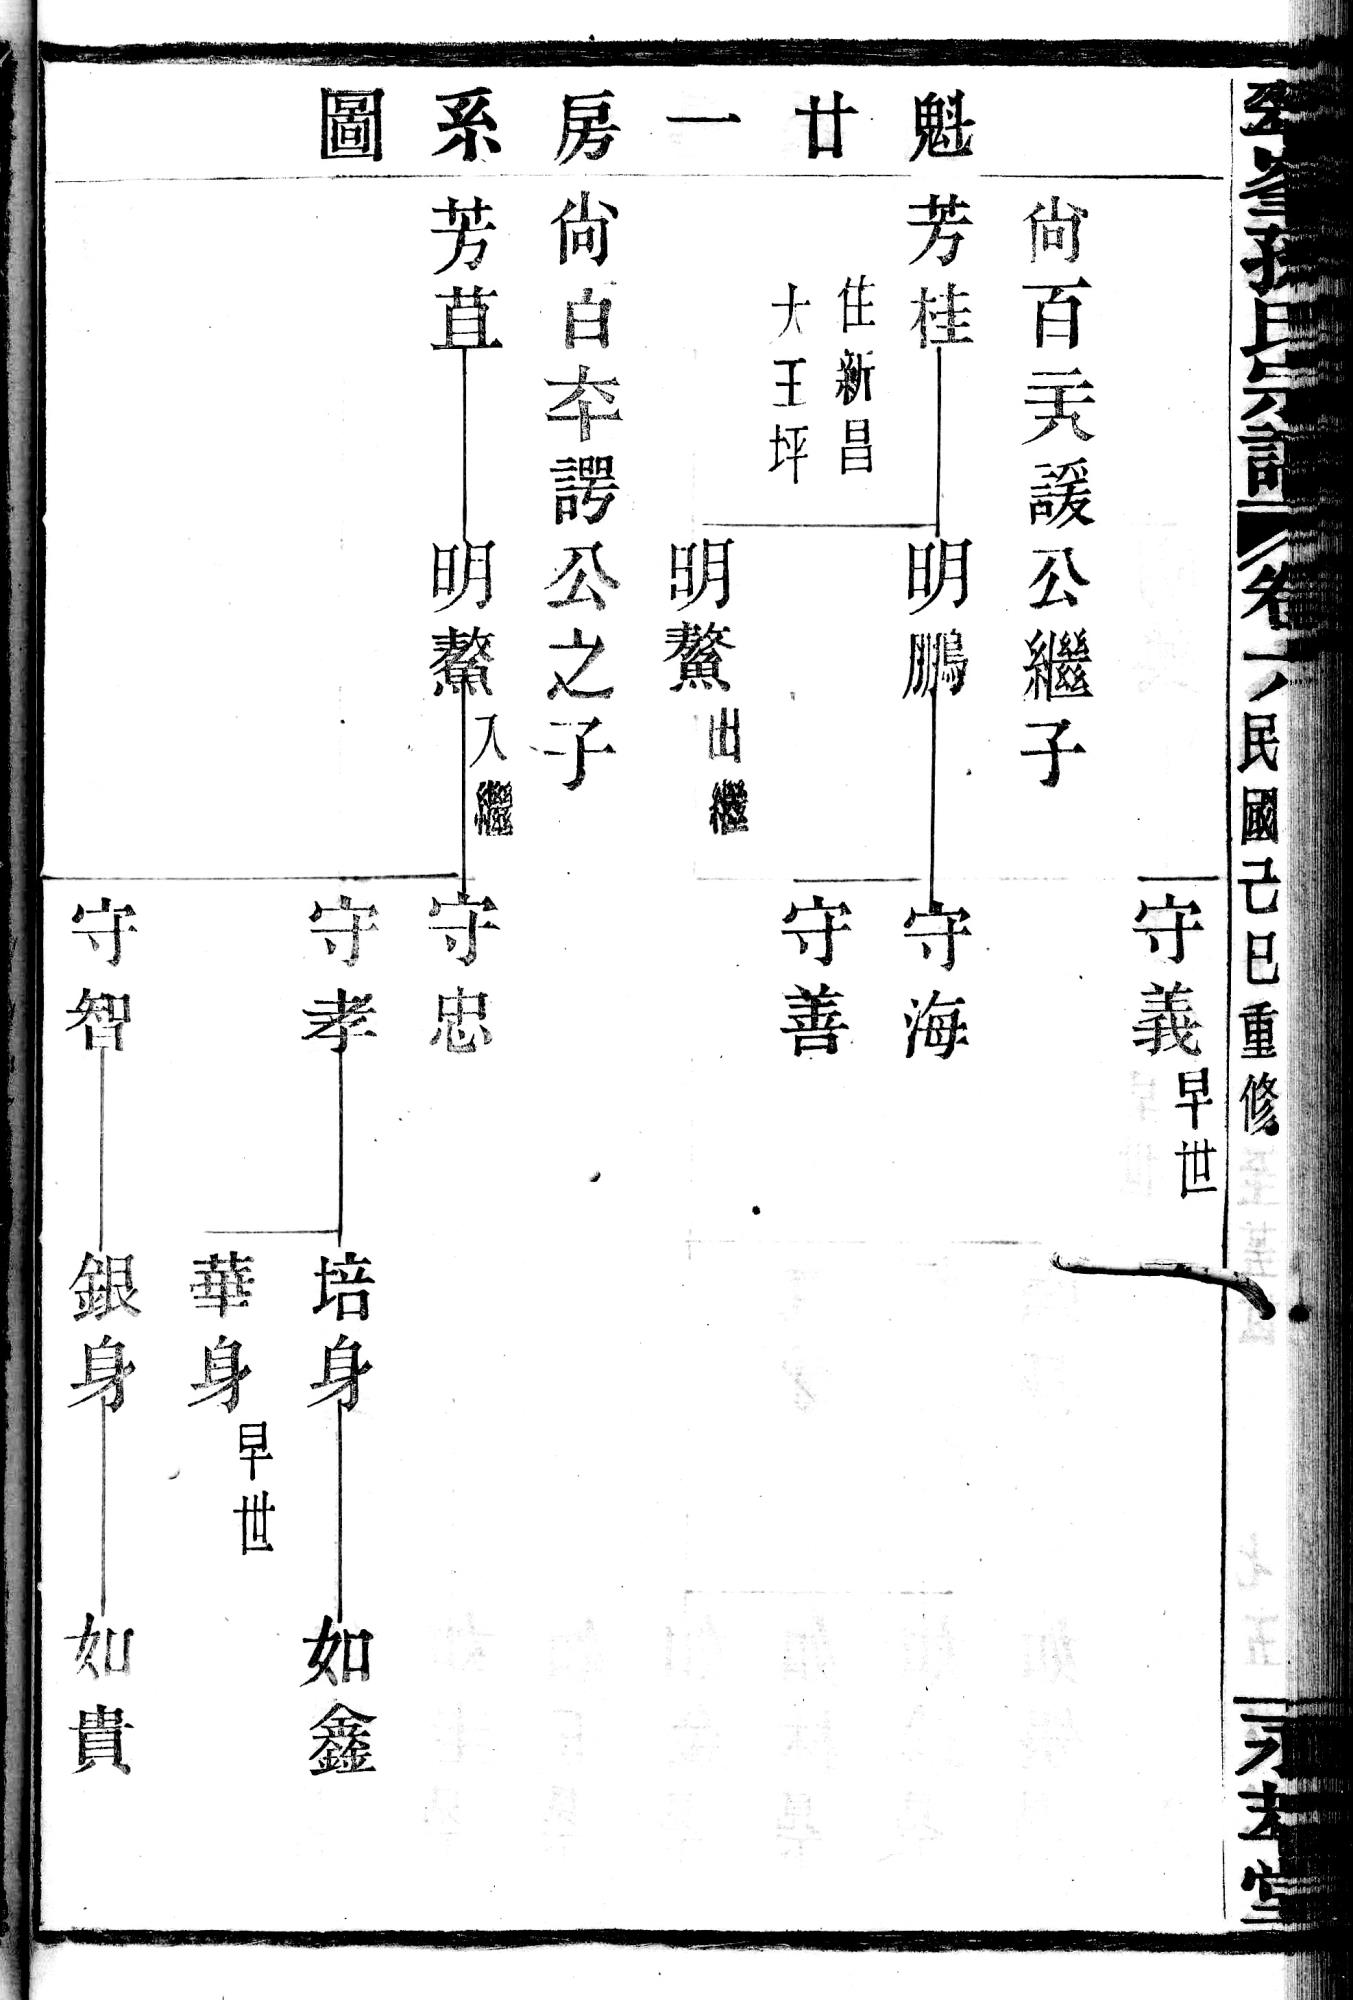 孫氏宗譜
卷一
民國己巳重修
永孝堂
魁廿一房系圖
守義
早世
尙百
諼公繼子
芳桂
住新昌
大王坪
明鵬
守海
守善
明鰲
出繼
尙百
諤公之子
芳苴
明鰲
入繼
守忠
守孝
培身
如鑫
華身
早世
守智
銀身
如貴